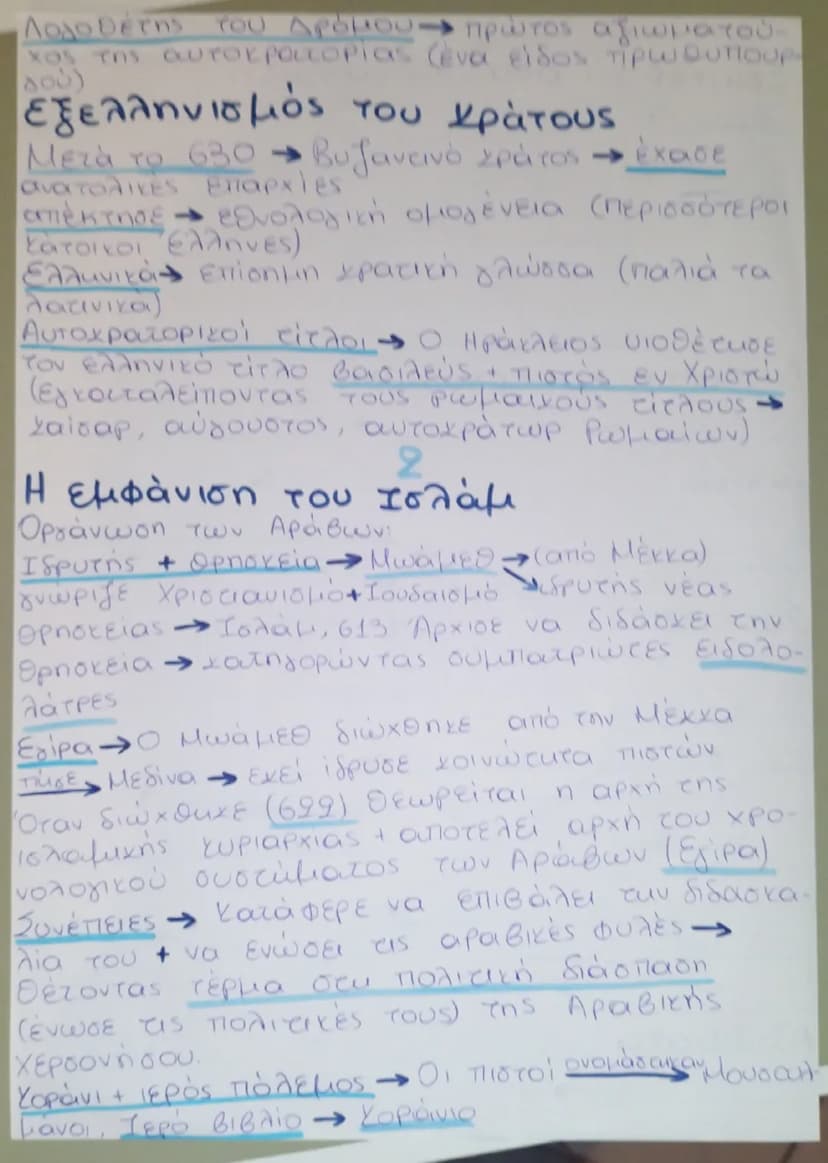 Λογοθέτης του Δρόμου → πρώτος αξιωματού-
χος της αυτοκρατορίας (ένα είδος πρωθυπουρ-
γού)
Εξελληνισμός του κράτους
Μετά το 630 → Βυζαντινό κράτος → έχασε
ανατολικές επαρχίες
απέκτησε → εθνολογική ομογένεια (περισσότεροι
κάτοικοι Έλληνες)
Ελληνικά → επίσημη κρατική γλώσσα (παλιά τα
λατινικά)
Αυτοκρατορικοί τίτλοι → Ο Ηράκλειος υιοθέτησε
τον ελληνικό τίτλο βασιλεύς + πιστός εν Χριστώ
(εγκαταλείποντας τους ρωμαικούς τίτλους →
καίσαρ, αύγουστος, αυτοκράτωρ Ρωμαίων)
2
Η εμφάνιση του Ισλάμ
Οργάνωση των Αράβων:
Ιδρυτής + θρησκεία → Μωάμεθ → (από Μέκκα)
γνώριζε Χριστιανισμό + Ιουδαισμό ↘ ιδρυτής νέας
θρησκείας → Ισλάμ, 613 Άρχισε να διδάσκει την
θρησκεία → κατηγορώντας συμπατριώτες ειδολο-
λάτρες
Εγίρα → Ο Μωάμεθ διώχθηκε από την Μέκκα
πήγε → Μεδίνα → Εκεί ίδρυσε κοινώτητα πιστών
Όταν διώχθηκε (622) θεωρείται η αρχή της
ισλαμικής κυριαρχίας + αποτελεί αρχή του χρο-
νολογικού συστήματος των Αράβων (Εγίρα)
Συνέπειες → Κατάφερε να επιβάλει την διδασκα-
λία του + να ενώσει τις αραβικές φυλές →
θέτοντας τέρμα στη πολιτική διάσπαση
(ένωσε τις πολιτικές τους) της Αραβικής
χερσονήσου.
Κοράνι + ιερός πόλεμος → Οι πιστοί ονομάστηκαν → Μουσουλ-
μάνοι, Ιερό βιβλίο → Κοράνιο